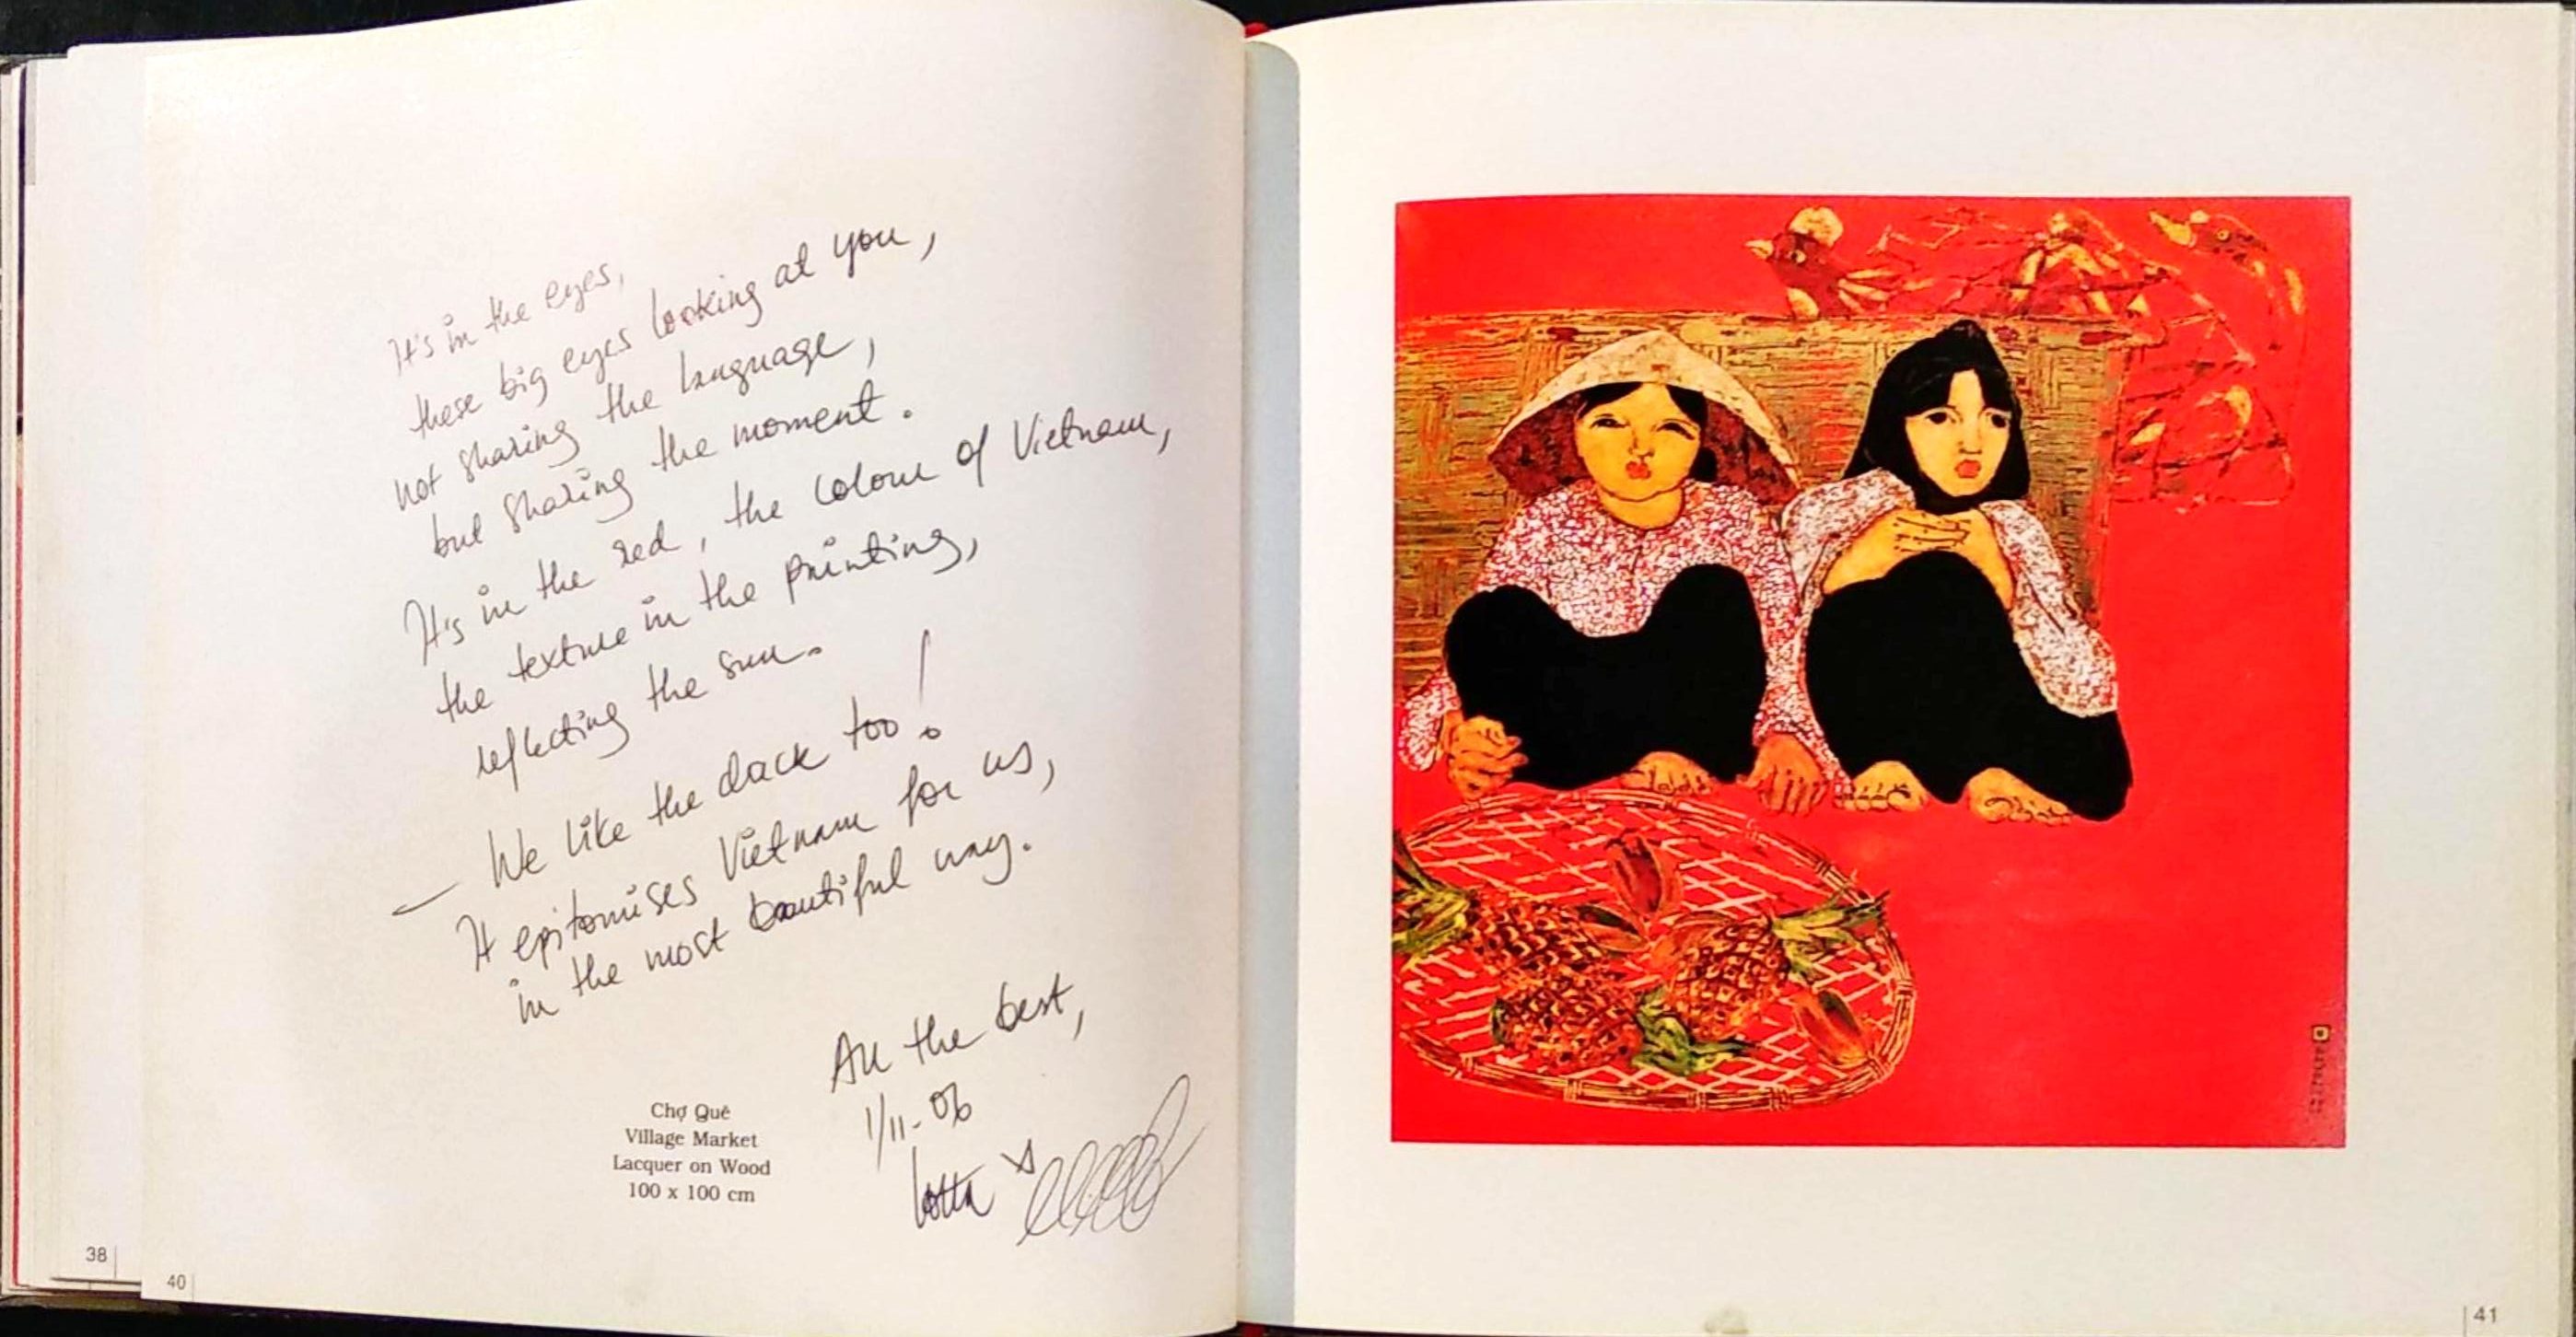 It's in the eyes,
these big eyes looking at you,
not sharing the language,
but sharing the moment.
It's in the red, the colour of Vietnam,
the texture in the painting,
reflecting the sun.
— We like the duck too!
It epitomises Vietnam for us,
in the most beautiful way.
All the best,
1/11-06
Lotta
Chợ Quê
Village Market
Lacquer on Wood
100 x 100 cm
38
40
41